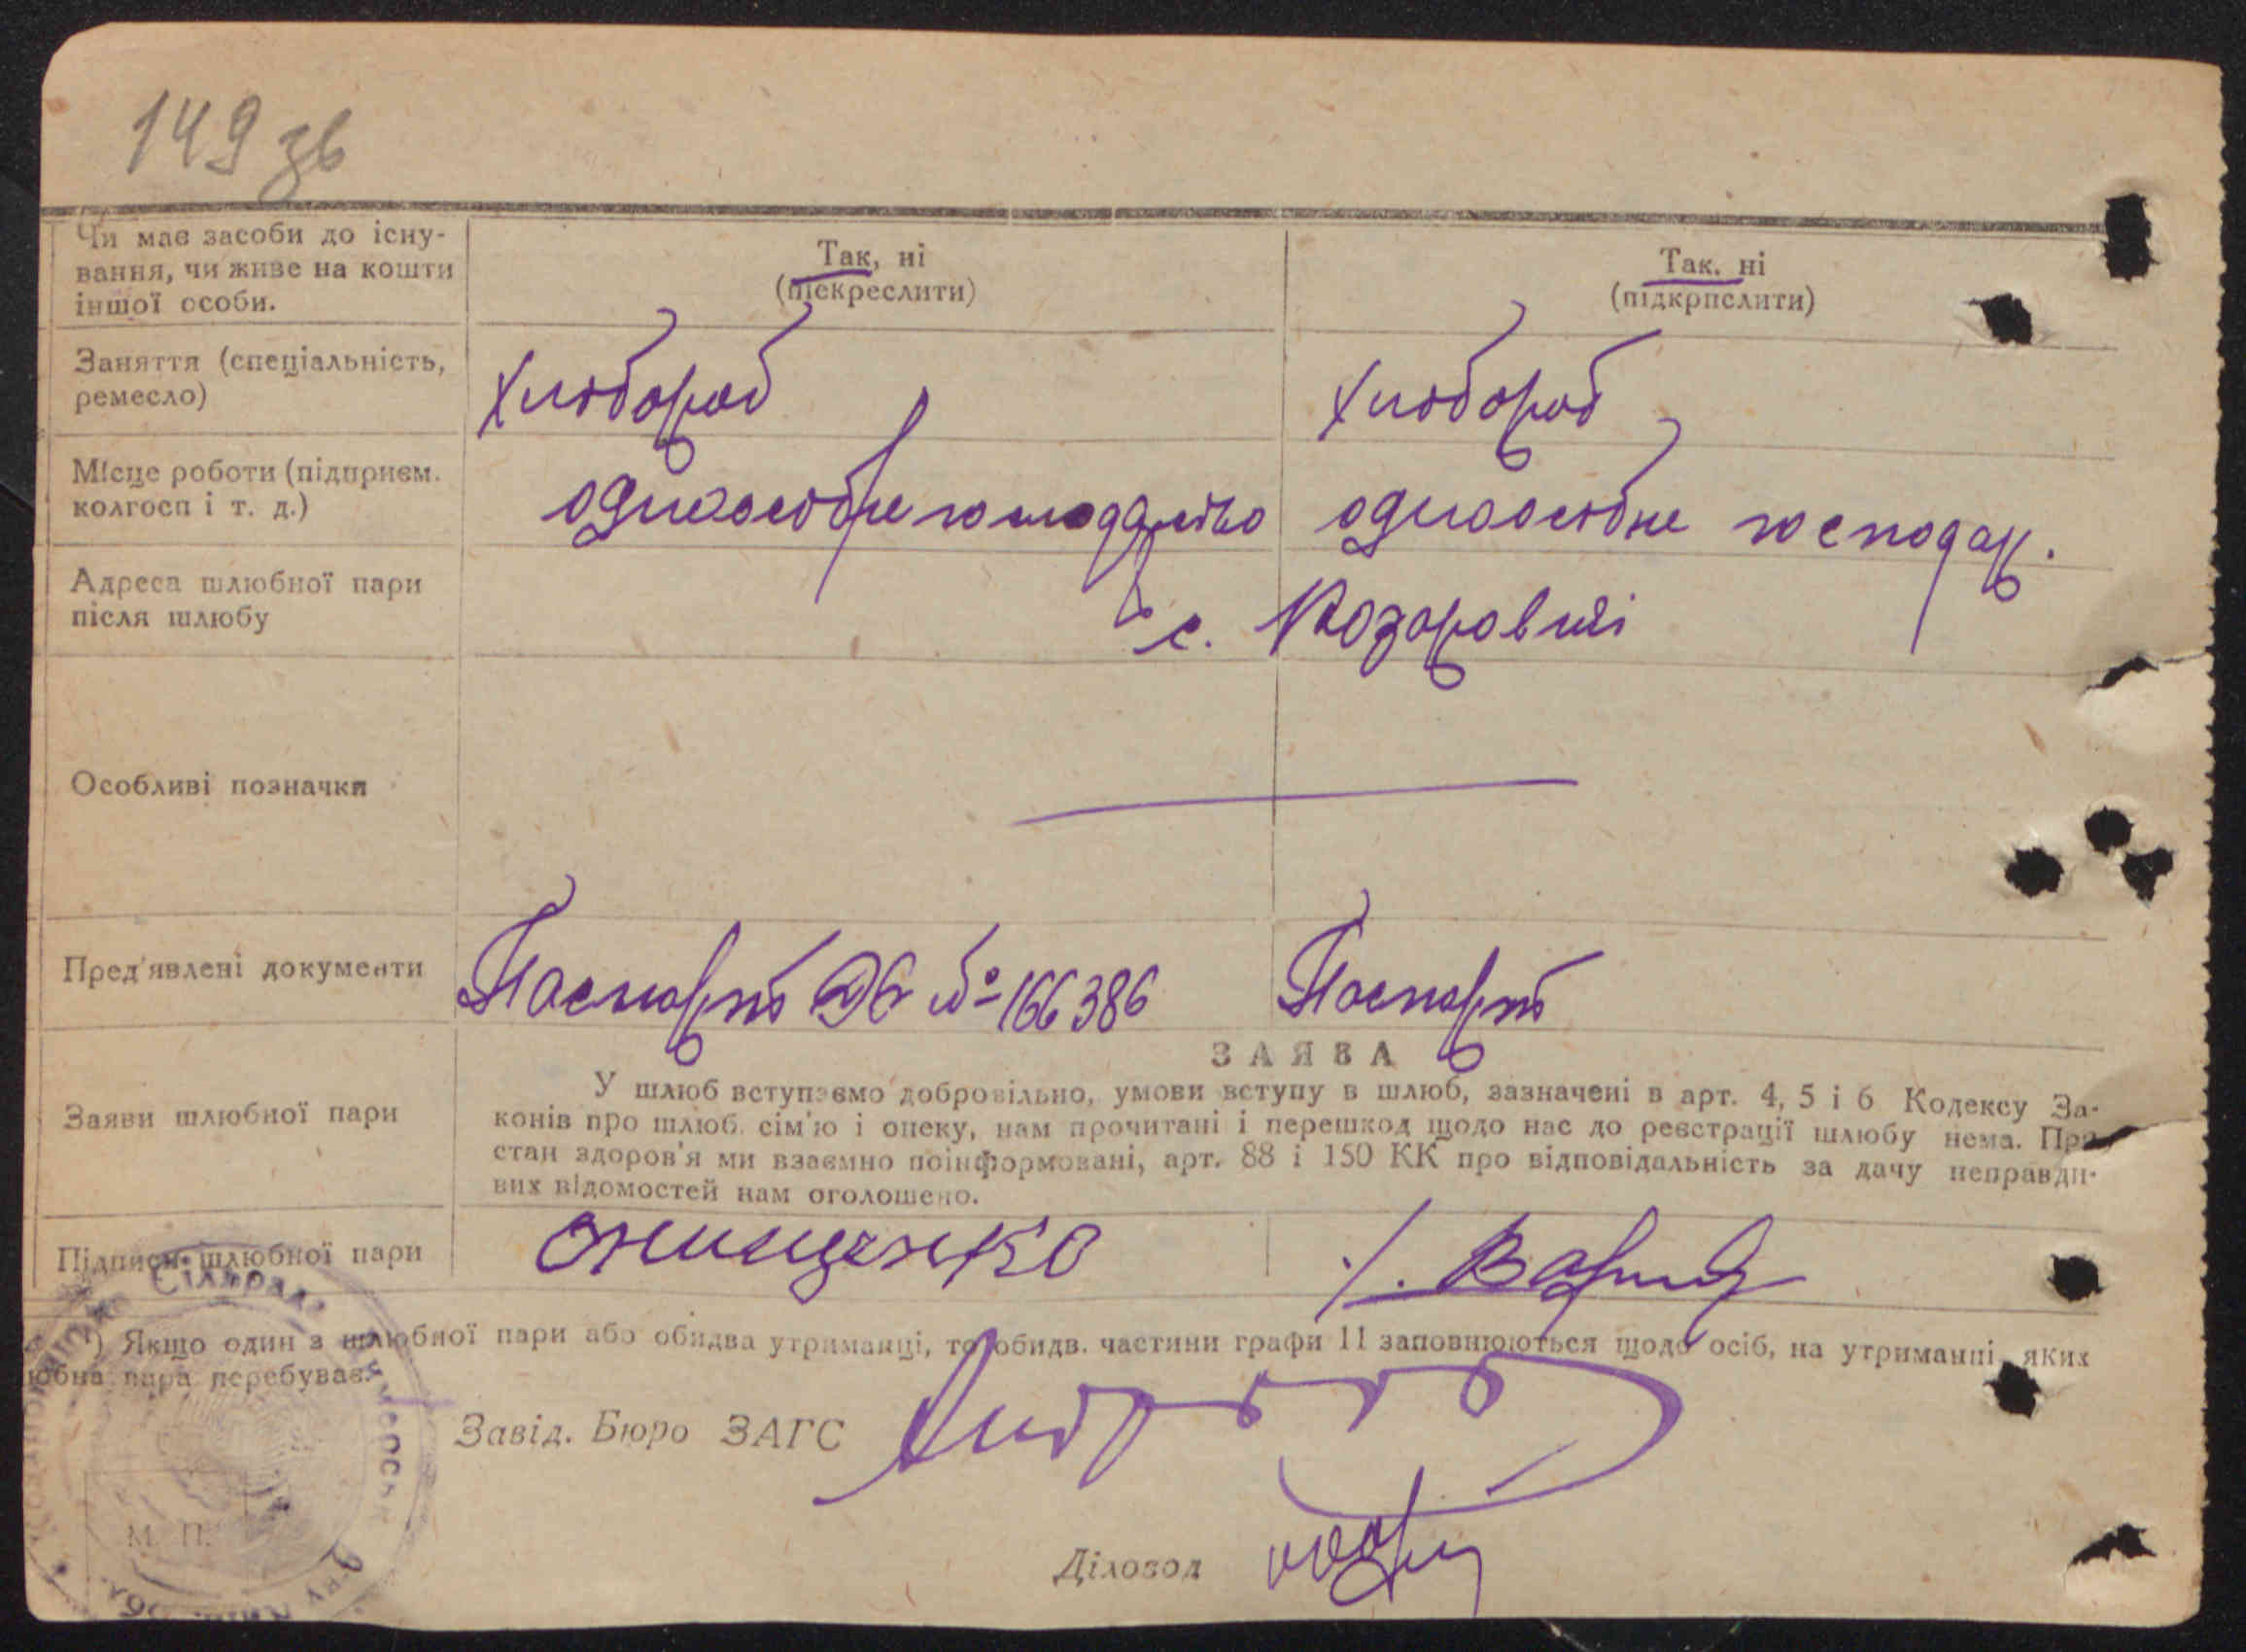 149 зв
Чи має засоби до існу-
вання, чи живе на кошти
іншої особи.
Так, ні
(підкреслити)
Так. ні
(підкрпслити)
Заняття (спеціальність,
ремесло)
Хлібороб
Хлібороб
Місце роботи (підприєм.
колгосп і т. д.)
одноосібне господарство
одноосібне господар.
Адреса шлюбної пари
після шлюбу
с. Козаровичі
Особливі позначки
Пред'явлені документи
Паспорт № 166386
Паспорт
Заяви шлюбної пари
ЗАЯВА
У шлюб вступаємо добровільно, умови вступу в шлюб, зазначені в арт. 4, 5 і 6 Кодексу За-
конів про шлюб. сім'ю і опеку, нам прочитані і перешкод щодо нас до реєстрації шлюбу нема. Про
стан здоров'я ми взаємно поінформовані, арт. 88 і 150 КК про відповідальність за дачу неправди-
вих відомостей нам оголошено.
Підписи шлюбної пари
Онищенко
*) Якщо один з шлюбної пари або обидва утриманці, то обидв. частини графи 11 заповнюються щодо осіб, на утриманні яких
юбна пара перебуває.
Завід. Бюро ЗАГС
М. П.
Діловод